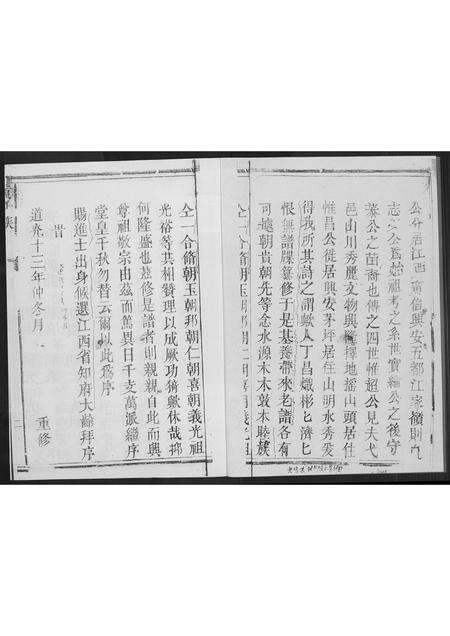 公分居江西 信興安五都江家嶺則
志 公爲始祖考之系世實 公之後守
公之苗裔也傳之四世惟超公見夫弋
邑山川秀麗文物興 擇地搖山頭居住
惟昌公徙居興安茅坪居山明水秀爰
得我所其詩之謂歟人丁昌熾彬匕濟匕
恨無譜牒纂修于是基養帶來老譜各有
可據朝貴朝先等念水源木本敦本睦族
仝一合脩朝玉朝邦朝仁朝喜朝義光祖
仝一合脩朝玉朝邦朝仁朝喜朝義光祖
光裕等共相贊理以成厥功猗歟休哉邦
何隆盛也茲修是譜者則親親自此而興
尊祖敬宗由茲而篤異日千支萬派繼序
堂皇千秋勿替云爾以此爲序
賜進士出身候選江西省知府大齡拜序
旹
道光十三年仲冬月 重修
族
二